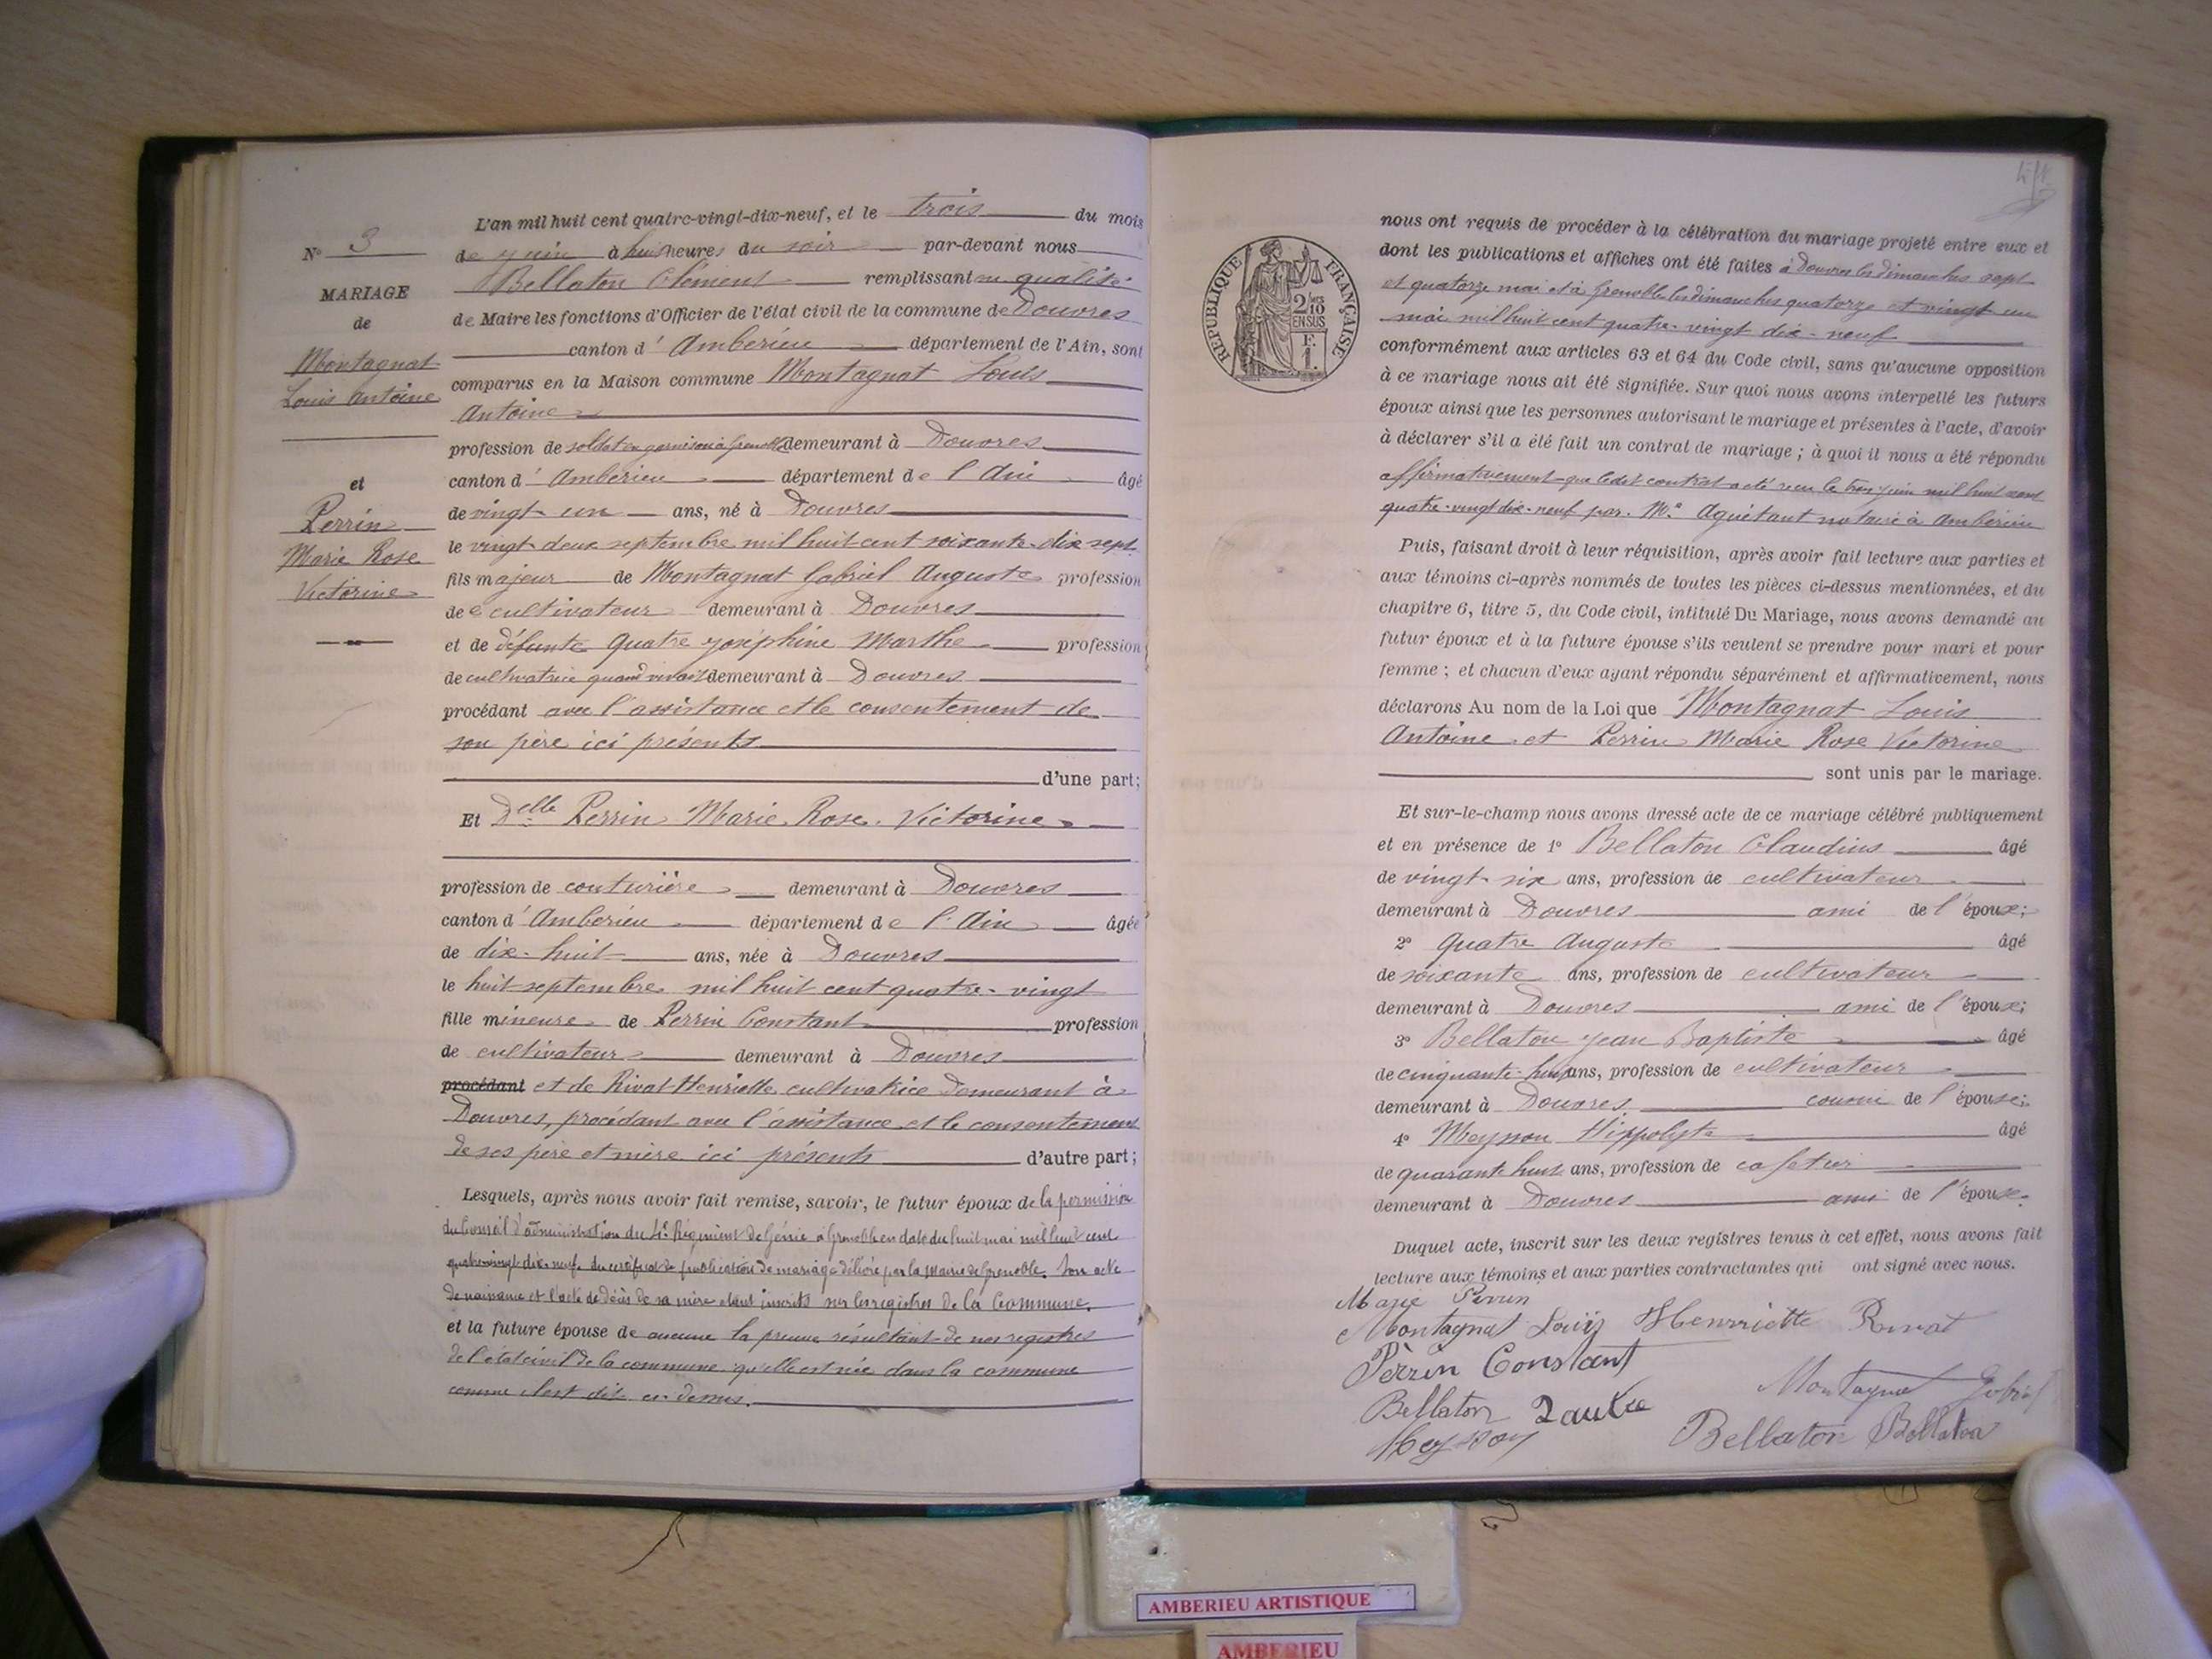 N° 3
MARIAGE
de
Montagnat
Louis Antoine
et
Perrin
Marie Rose
Victorine
L'an mil huit cent quatre-vingt-dix-neuf, et le trois du mois
de juin à huit heures du soir par-devant nous
Bellaton Clément remplissant en qualité
de Maire les fonctions d'Officier de l'état civil de la commune de Douvres
canton d'Ambérieu département de l'Ain, sont
comparus en la Maison commune Montagnat Louis
Antoine
profession de soldat en garnison à Grenoble demeurant à Douvres
canton d'Ambérieu département de l'Ain âgé
de vingt un ans, né à Douvres
le vingt deux septembre mil huit cent soixante-dix sept
fils majeur de Montagnat Gabriel Auguste profession
de cultivateur demeurant à Douvres
et de défunte Quatre Joséphine Marthe profession
de cultivatrice quand vivait demeurant à Douvres
procédant avec l'assistance et le consentement de
son père ici présents
d'une part;
Et Delle Perrin Marie Rose Victorine
profession de couturière demeurant à Douvres
canton d'Ambérieu département de l'Ain âgée
de dix-huit ans, née à Douvres
le huit septembre mil huit cent quatre-vingt
fille mineure de Perrin Constant profession
de cultivateur demeurant à Douvres
procédant et de Rivat Henriette cultivatrice demeurant à
Douvres, procédant avec l'assistance et le consentement
de ses père et mère ici présents d'autre part;
Lesquels, après nous avoir fait remise, savoir, le futur époux de la permission
du Conseil d'administration du 4e Régiment de Génie à Grenoble en date du huit mai mil huit cent
quatre-vingt-dix-neuf du certificat de publication de mariage délivré par la Mairie de Grenoble. Son acte
de naissance et l'acte de décès de sa mère étant inscrits sur les registres de la Commune.
et la future épouse de aucune la preuve résultant de nos registres
de l'état civil de la commune qu'elle est née dans la commune
comme il est dit ci-dessus.
RÉPUBLIQUE FRANÇAISE
2/10
EN SUS
F.
1.
nous ont requis de procéder à la célébration du mariage projeté entre eux et
dont les publications et affiches ont été faites à Douvres les dimanches sept
et quatorze mai et à Grenoble les dimanches quatorze et vingt un
mai mil huit cent quatre-vingt dix-neuf
conformément aux articles 63 et 64 du Code civil, sans qu'aucune opposition
à ce mariage nous ait été signifiée. Sur quoi nous avons interpellé les futurs
époux ainsi que les personnes autorisant le mariage et présentes à l'acte, d'avoir
à déclarer s'il a été fait un contrat de mariage; à quoi il nous a été répondu
affirmativement que ledit contrat a été reçu le trois juin mil huit cent
quatre-vingt dix-neuf par Me Aguétant notaire à Ambérieu
Puis, faisant droit à leur réquisition, après avoir fait lecture aux parties et
aux témoins ci-après nommés de toutes les pièces ci-dessus mentionnées, et du
chapitre 6, titre 5, du Code civil, intitulé Du Mariage, nous avons demandé au
futur époux et à la future épouse s'ils veulent se prendre pour mari et pour
femme; et chacun d'eux ayant répondu séparément et affirmativement, nous
déclarons Au nom de la Loi que Montagnat Louis
Antoine et Perrin Marie Rose Victorine
sont unis par le mariage.
Et sur-le-champ nous avons dressé acte de ce mariage célébré publiquement
et en présence de 1° Bellaton Claudius âgé
de vingt-six ans, profession de cultivateur
demeurant à Douvres ami de l'époux;
2° Quatre Auguste âgé
de soixante ans, profession de cultivateur
demeurant à Douvres ami de l'époux;
3° Bellaton Jean Baptiste âgé
de cinquante-huit ans, profession de cultivateur
demeurant à Douvres cousin de l'épouse;
4° Meysson Hippolyte âgé
de quarante huit ans, profession de cafetier
demeurant à Douvres ami de l'épouse.
Duquel acte, inscrit sur les deux registres tenus à cet effet, nous avons fait
lecture aux témoins et aux parties contractantes qui ont signé avec nous.
Marie Perrin
Montagnat Louis Henriette Rivat
Perrin Constant
Montagnat Gabriel
Bellaton Quatre
Bellaton Bellaton
Meysson
AMBERIEU ARTISTIQUE
AMBERIEU